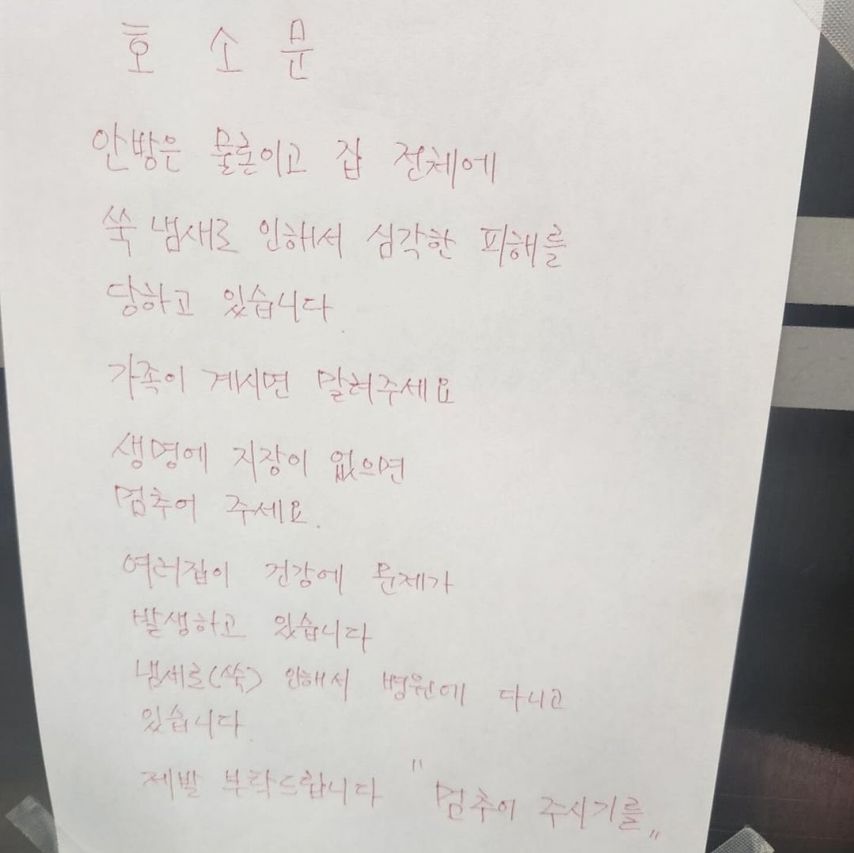 호 소 문
안방은 물론이고 집 전체에
쑥 냄새로 인해서 심각한 피해를
당하고 있습니다.
가족이 계시면 말려주세요
생명에 지장이 없으면
멈추어 주세요.
여러집이 건강에 문제가
발생하고 있습니다
냄세로(쑥) 인해서 병원에 다니고
있습니다.
제발 부탁드립니다 "멈추어 주시기를"